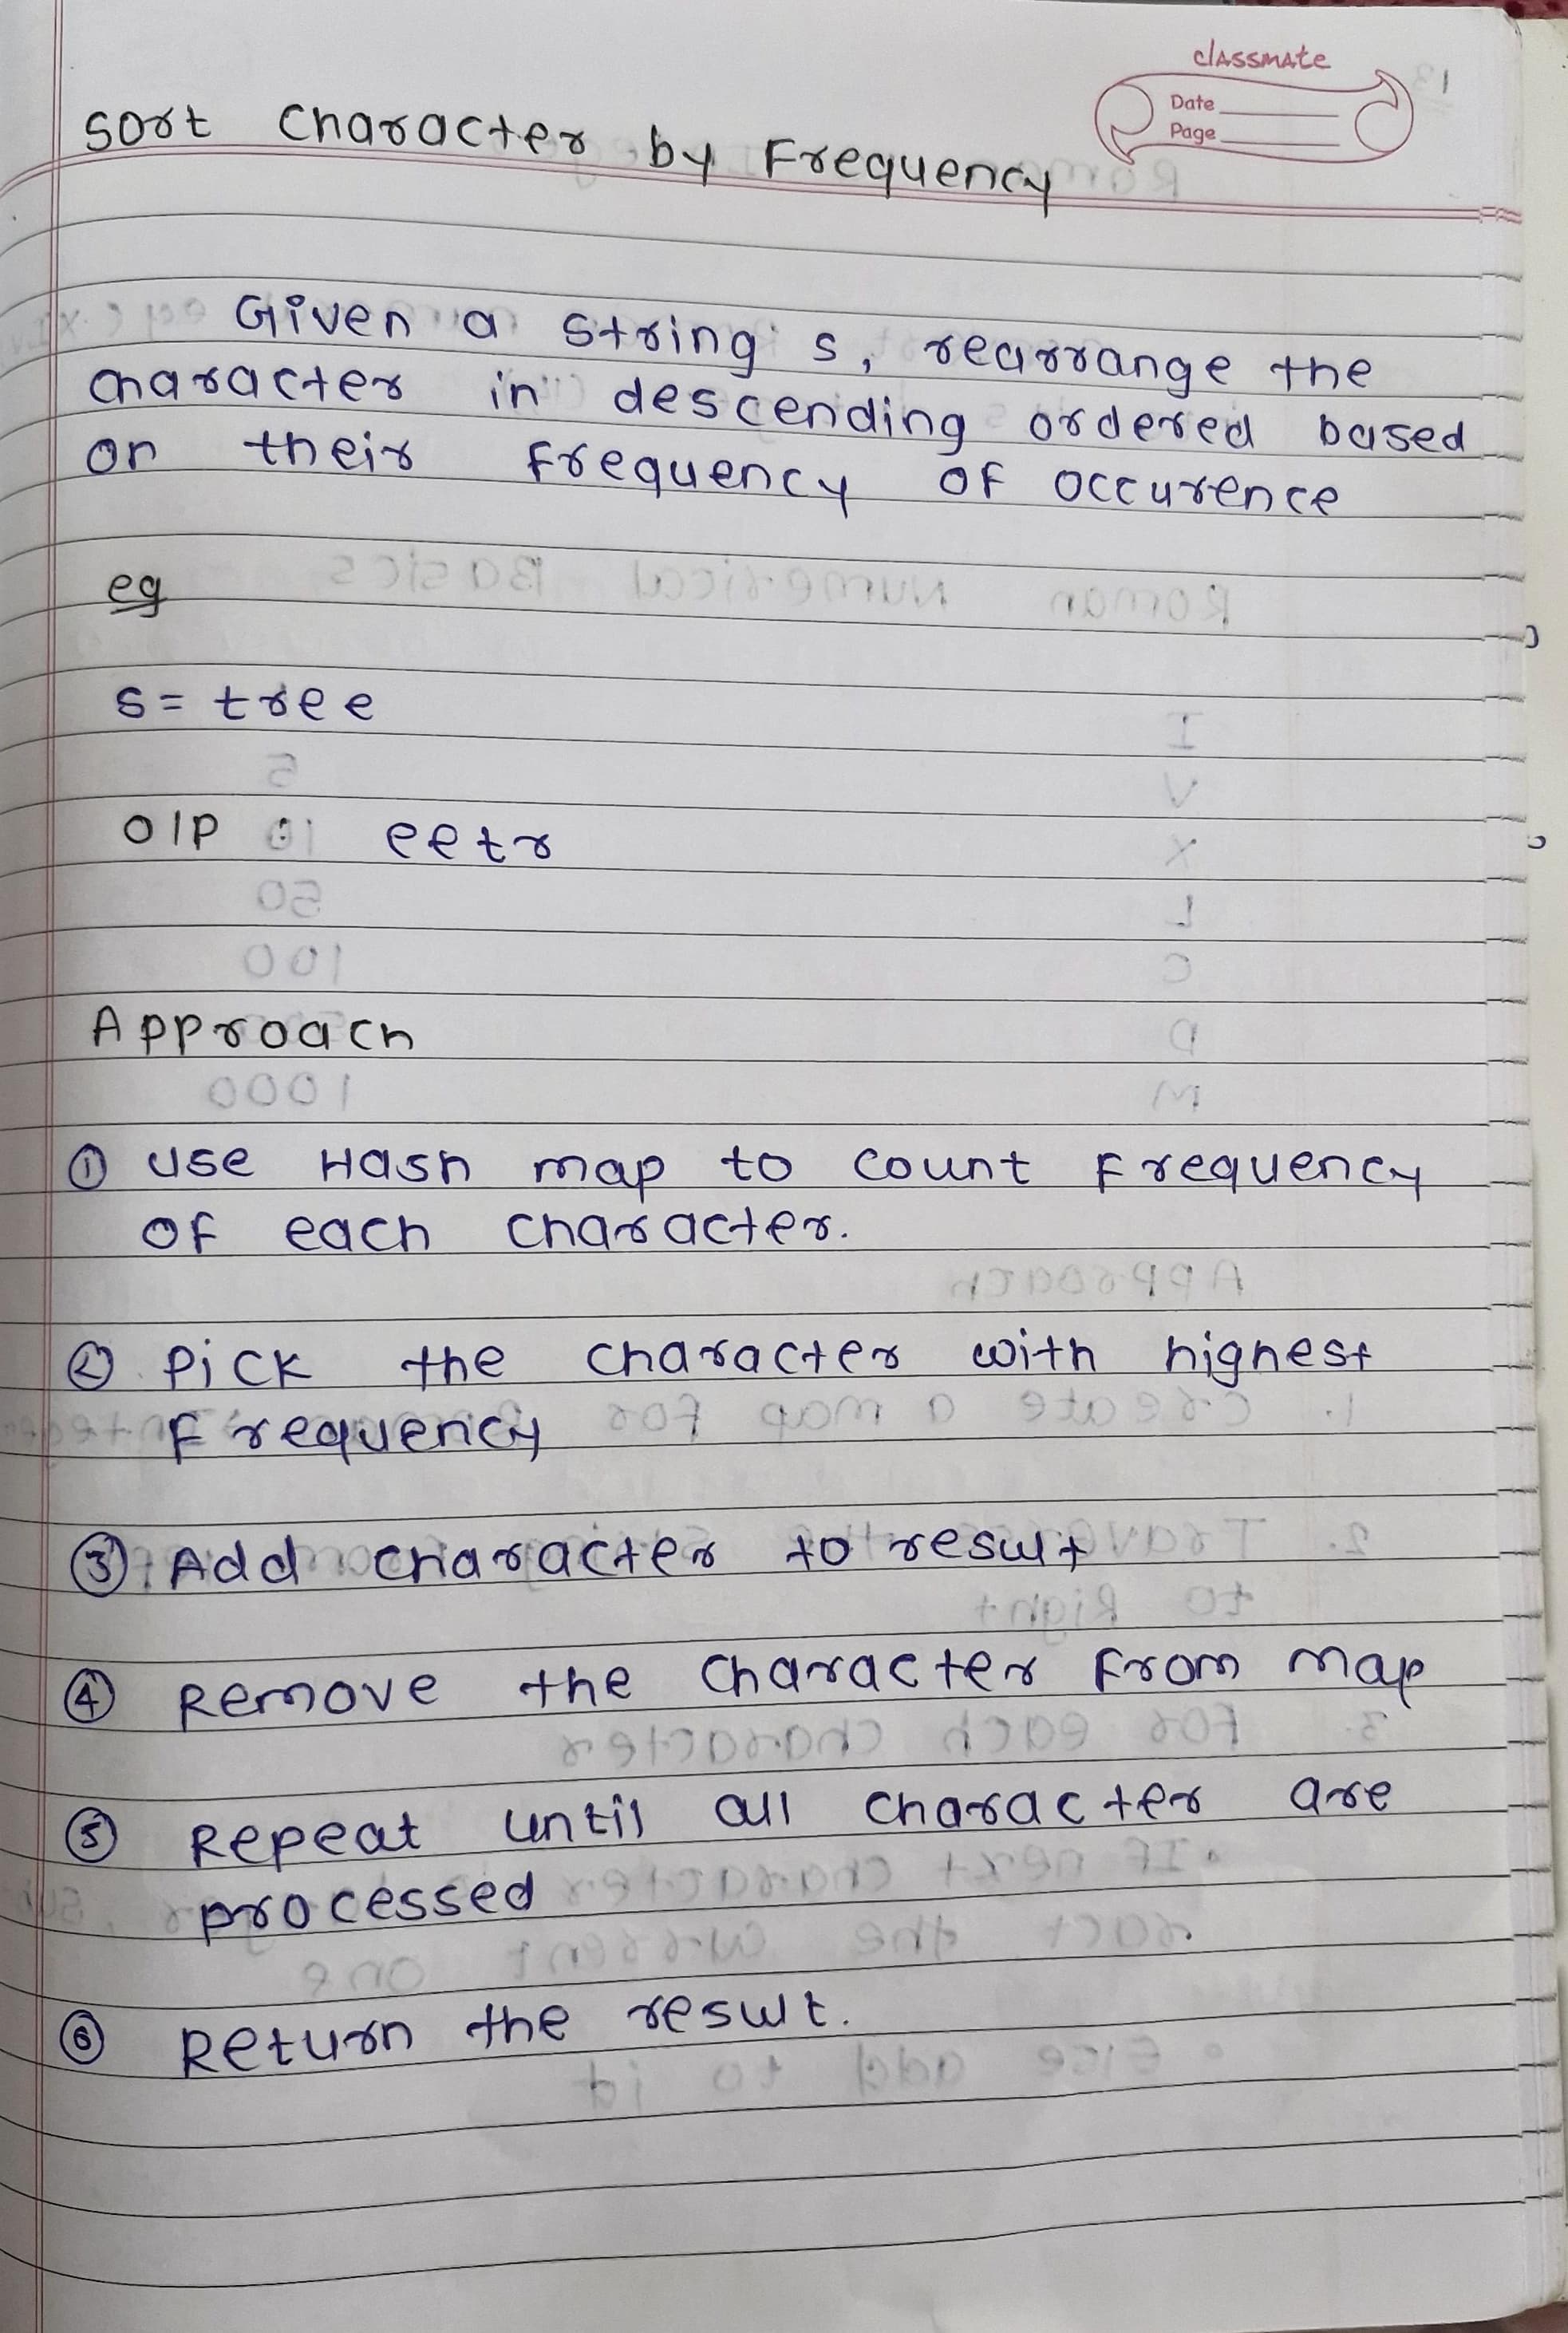 classmate
Date
Page
Sort Character by Frequency
Given a string s, rearrange the
character in descending ordered based
on their frequency of occurence
eg
s = tree
O/P : eetr
Approach
① Use Hash map to count Frequency
of each character.
② Pick the character with highest
Frequency
③ Add character to result
④ Remove the character from map
⑤ Repeat until all character are
processed
⑥ Return the result.